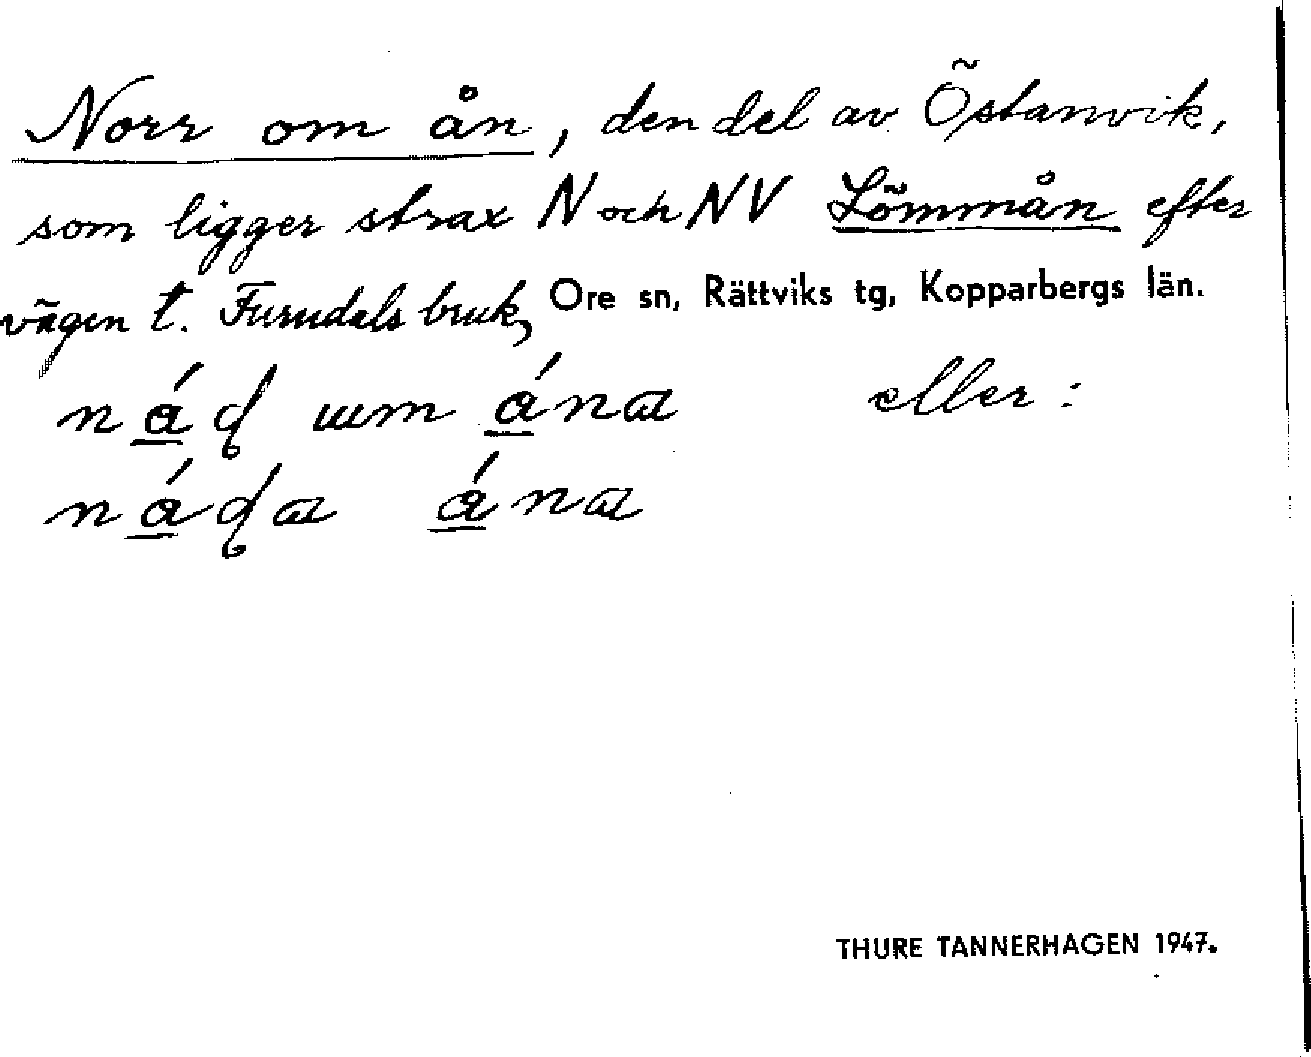 Norr om ån, den del av Östanvik,
som ligger strax N och NV Lömmån efter
vägen t. Furudals bruk, Ore sn, Rättviks tg, Kopparbergs län.
eller:
THURE TANNERHAGEN 1947.